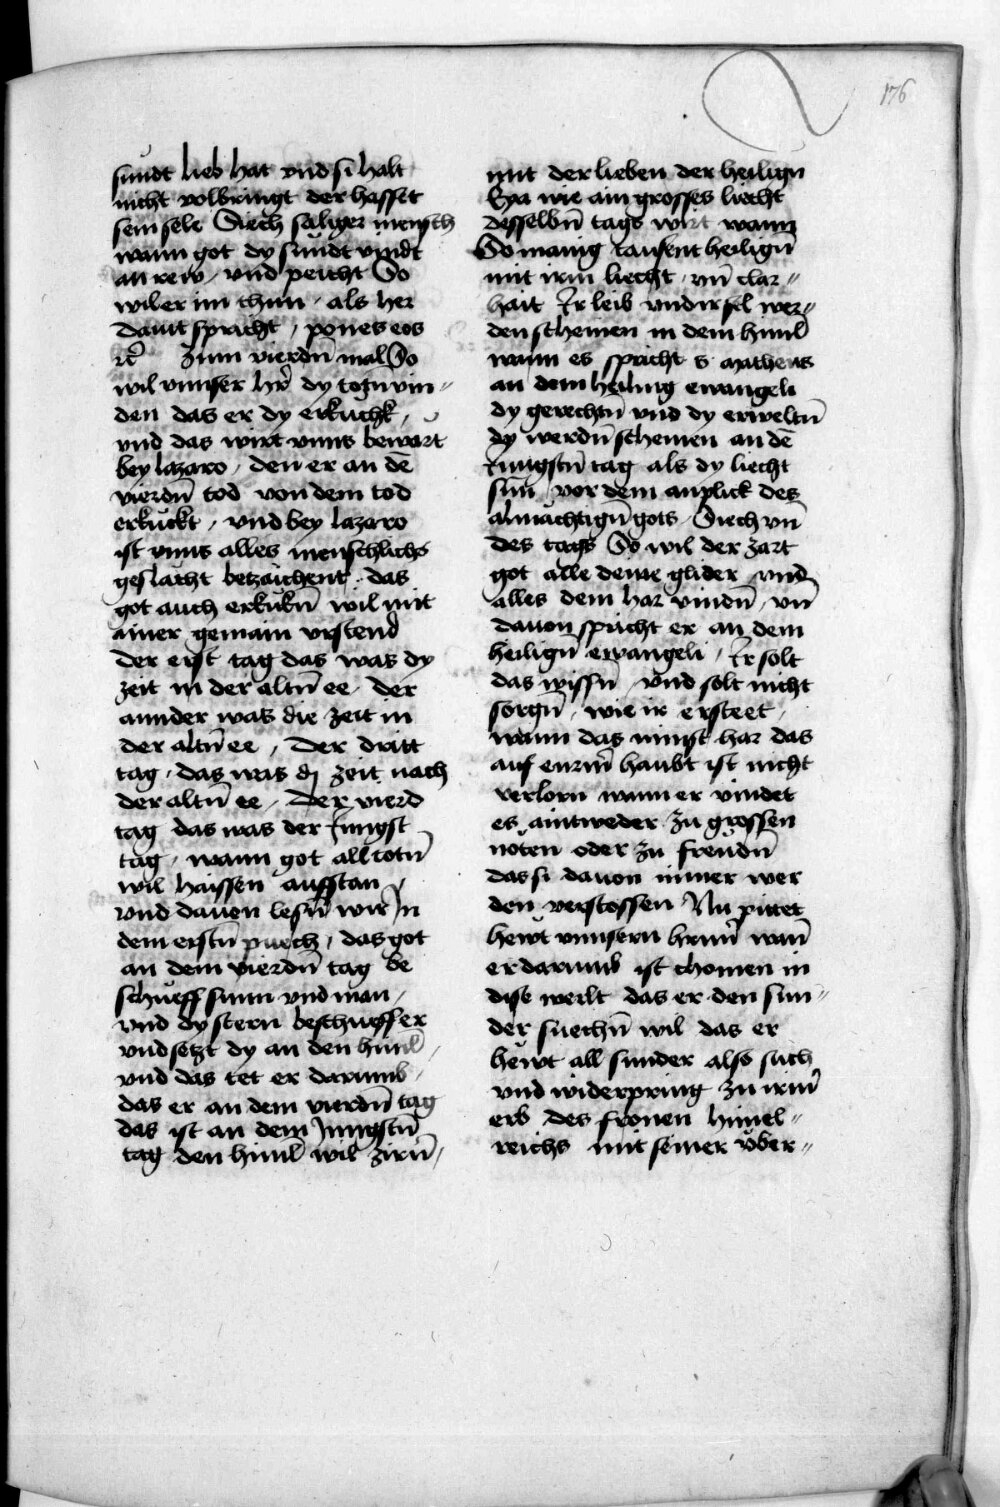 176
sundt lieb hat vnd si halt
nicht volbringt der hasset
sein sele Siech saliger mensch
wann got dy sundt vindt
an rew / vnd peicht So
wil er im thun / als her
dauit spricht / pones eos
rc̄ zum vierdn̄ mal So
wil vnnser hr̄ dy totn̄ vin=
den das er dy erkuchk /
vnd das wirt vnns bewärt
bey lazaro / den er an dē
vierdn̄ tod von dem tod
erkuckt / vnd bey lazaro
ist vnns alles menschlichs
geslächt betzaichent / das
got auch erkukn̄ wil mit
ainer gemain vrstend
Der erst tag das was dy
zeit in der altn̄ ee / der
annder was die zeit in
der altn̄ ee / Der dritt
tag / das was dy zeit nach
der altn̄ ee / Der vierd
tag das was der Jungst
tag / wann got all totn̄
wil haissen aufstan /
vnd dauon lesn̄ wir In
dem erstn̄ puech / das got
an dem vierdn̄ tag be
schueff sunn vnd man /
vnd dy stern beschueff er
vnd setzt dy an den himl /
vnd das tet er darumb /
das er an dem vierdn̄ tag
das ist an dem Jungstn̄
tag den himl wil zirn̄ /
mit der lieben der heilign̄
Eya wie ain grosses liecht
desselbn̄ tags wirt wann
So manig tausent heilign̄
mit irm liecht / vn̄ clar=
hait Ir leib vnd ir sel wer=
den scheinen in dem himl
wann es spricht s matheus
an dem heiling ewangeli
dy gerechtn̄ vnd dy erweltn̄
dy werdn̄ scheinen an dē
Jungstn̄ tag als dy liecht
sun̄ vor dem anplick des
almächtign̄ gots / Siech vn̄
des tags So wil der zart
got alle deine glider vnd
alles dein har vindn̄ / vn̄
dauon spricht er an dem
heilign̄ ewangeli / Ir solt
das wissn̄ / vnd solt nicht
sorgn̄ / wie ir ersteet /
wann das minst har das
auf eurm̄ haubt ist nicht
verlorn wann er vindet
es aintweder zu grossen
nöten oder zu freudn̄
das si dauon nimer wer
den verstossen Nu pittet
hewt vnnsern hrnn̄ wan̄
er darumb ist chomen in
dise werlt das er den sun=
der suechn̄ wil das er
hewt all sunder also such
vnd widerpring zu irm̄
erb des fronen himel=
reichs mit seiner vber=